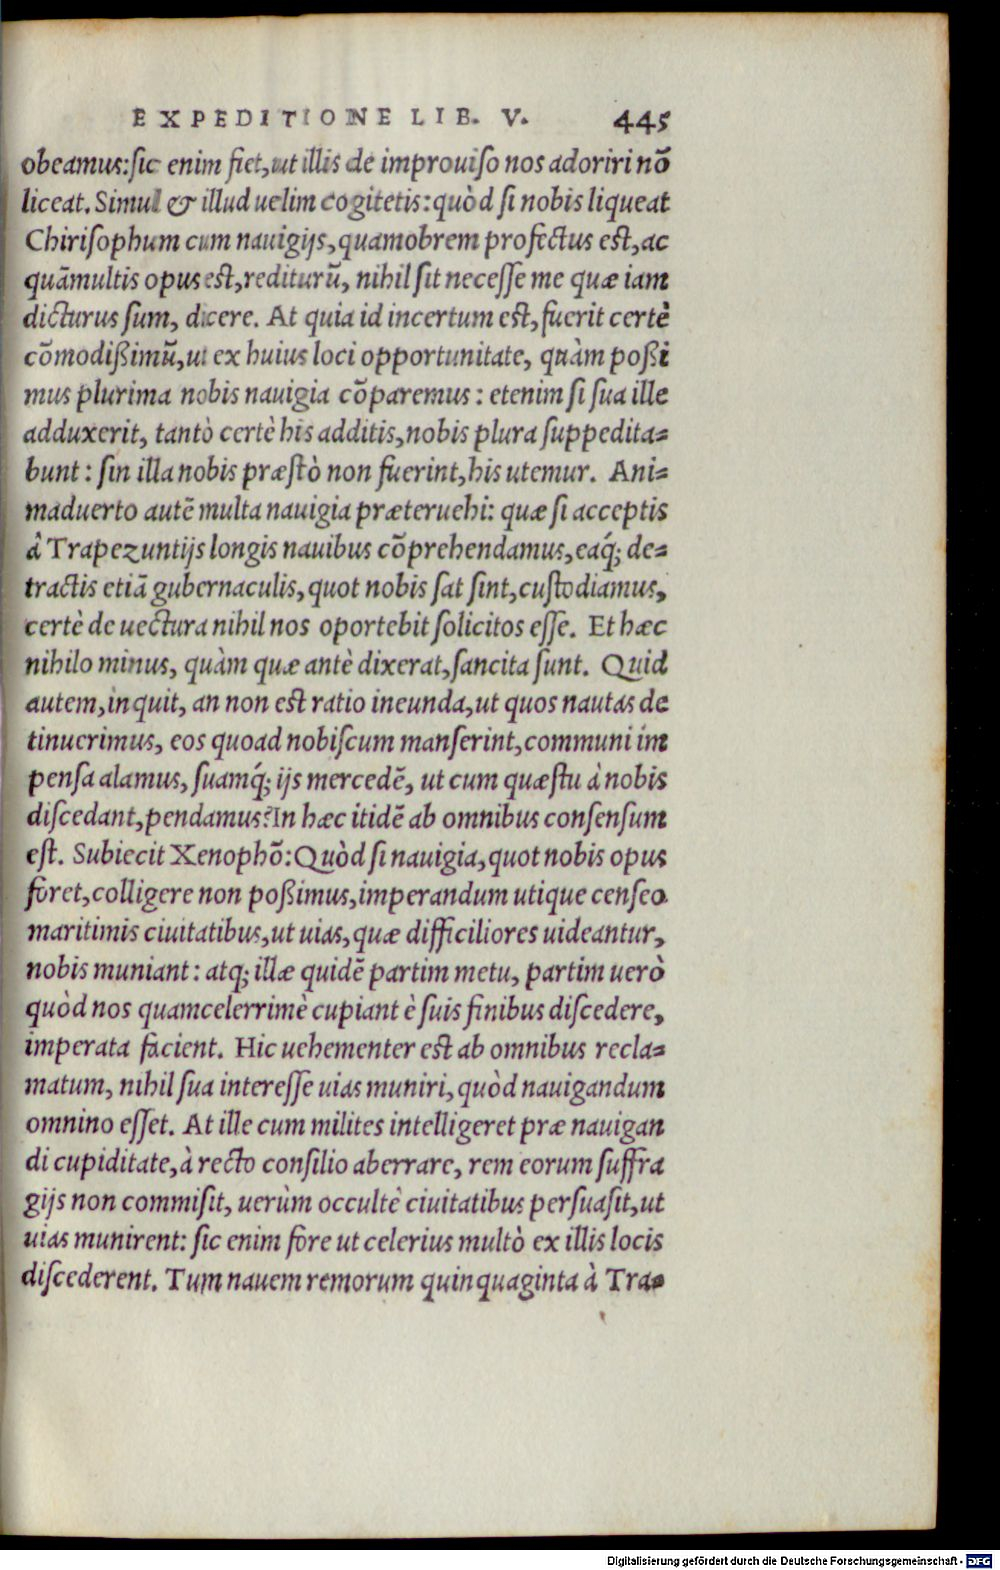 EXPEDITIONE LIB. V. 445
obeamus:ſic enim fiet,ut illis de improuiſo nos adoriri nõ
liceat. Simul & illud uelim cogitetis: quòd ſi nobis liqueat
Chiriſophum cum nauigijs, quamobrem profectus est, ac
quãmultis opus est, rediturũ, nihil ſit neceſſe me quæ iam
dicturus ſum, dicere. At quia id incertum est, fuerit certè
cõmodißimũ, ut ex huius loci opportunitate, quàm poßi
mus plurima nobis nauigia cõparemus: etenim ſi ſua ille
adduxerit, tantò certè his additis, nobis plura ſuppedita=
bunt: ſin illa nobis præstò non fuerint, his utemur. Ani=
maduerto autẽ multa nauigia præteruehi: quæ ſi acceptis
à Trapezuntijs longis nauibus cõprehendamus, eaq́; de=
tractis etiã gubernaculis, quot nobis ſat ſint, custodiamus,
certè de uectura nihil nos oportebit ſolicitos eſſe. Et hæc
nihilo minus, quàm quæ antè dixerat, ſancita ſunt. Quid
autem, inquit, an non est ratio ineunda, ut quos nautas de
tinuerimus, eos quoad nobiſcum manſerint, communi im
penſa alamus, ſuamq́; ijs mercedẽ, ut cum quæstu à nobis
diſcedant, pendamus? In hæc itidẽ ab omnibus conſenſum
est. Subiecit Xenophõ: Quòd ſi nauigia, quot nobis opus
foret, colligere non poßimus, imperandum utique cenſeo
maritimis ciuitatibus, ut uias, quæ difficiliores uideantur,
nobis muniant: atq; illæ quidẽ partim metu, partim uerò
quòd nos quamcelerrimè cupiant è ſuis finibus diſcedere,
imperata facient. Hic uehementer est ab omnibus recla=
matum, nihil ſua intereſſe uias muniri, quòd nauigandum
omnino eſſet. At ille cum milites intelligeret præ nauigan
di cupiditate, à recto conſilio aberrare, rem eorum ſuffra
gijs non commiſit, uerùm occultè ciuitatibus perſuaſit, ut
uias munirent: ſic enim fore ut celerius multò ex illis locis
diſcederent. Tum nauem remorum quinquaginta à Tra=
Digitalisierung gefördert durch die Deutsche Forschungsgemeinschaft - DFG